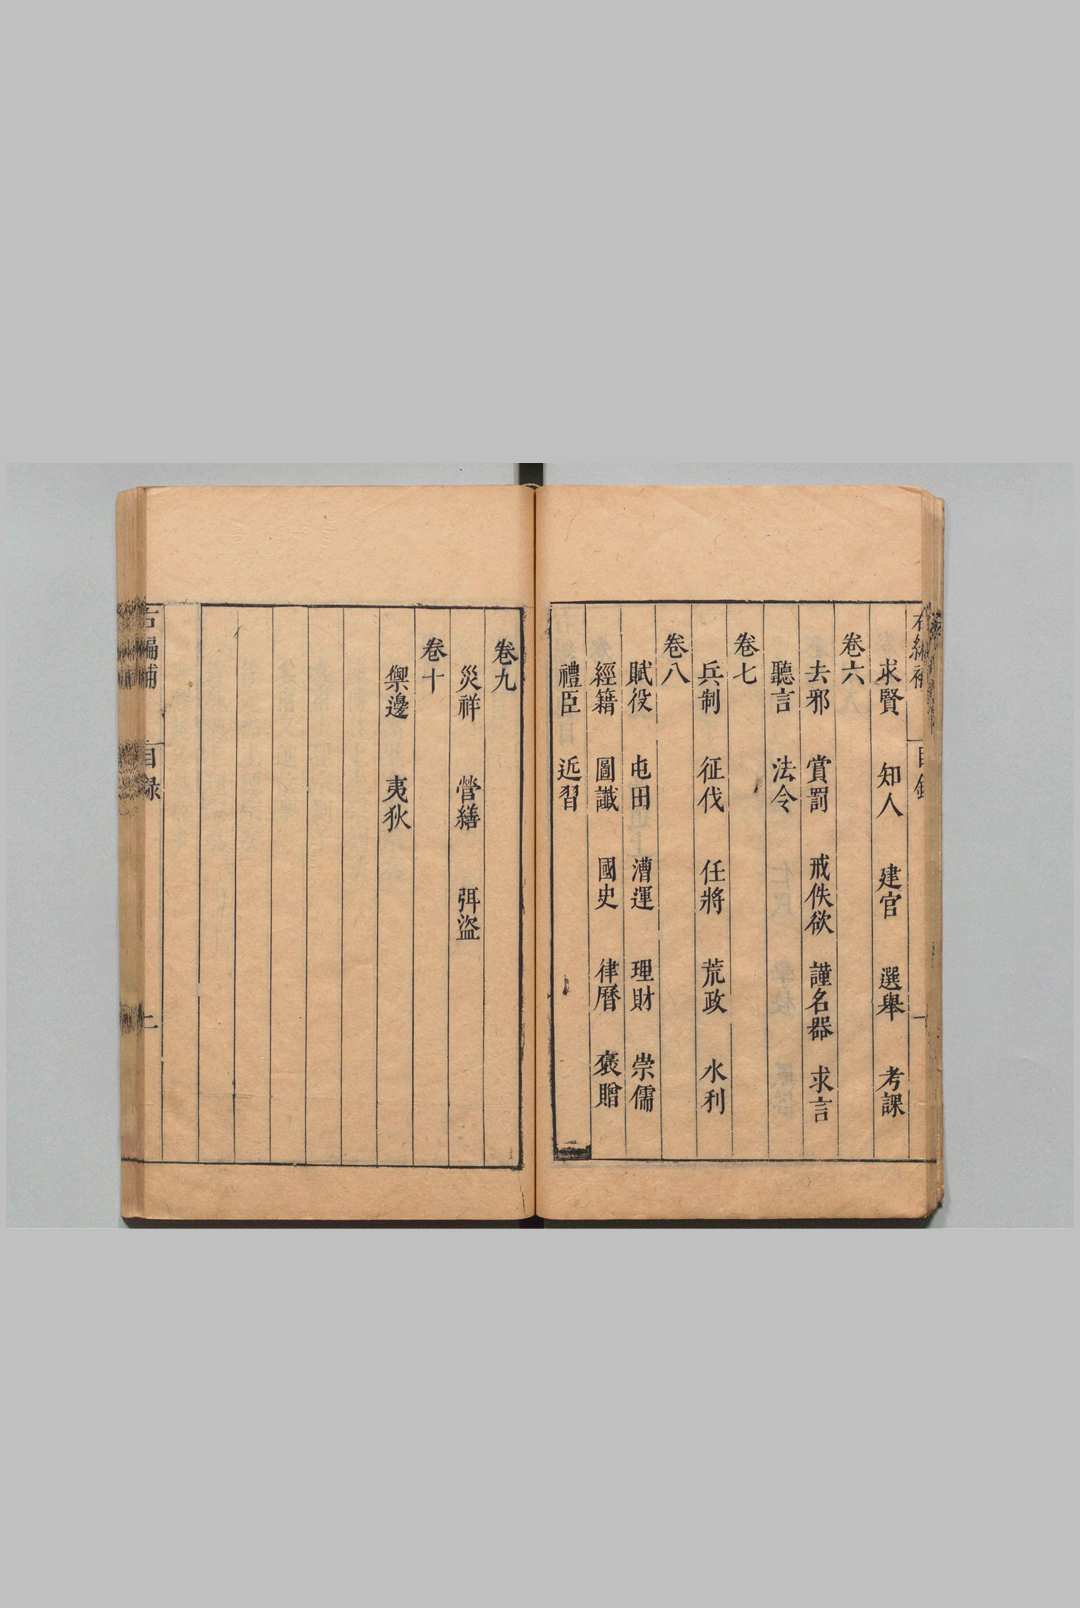 右編補 目錄 一
求賢 知人 建官 選舉 考課
卷六
去邪 賞罰 戒佚欲 謹名器 求言
聽言 法令
卷七
兵制 征伐 任將 荒政 水利
卷八
賦役 屯田 漕運 理財 崇儒
經籍 圖讖 國史 律曆 褒贈
禮臣 近習
卷九
災祥 營繕 弭盜
卷十
禦邊 夷狄
右編補 目録 二